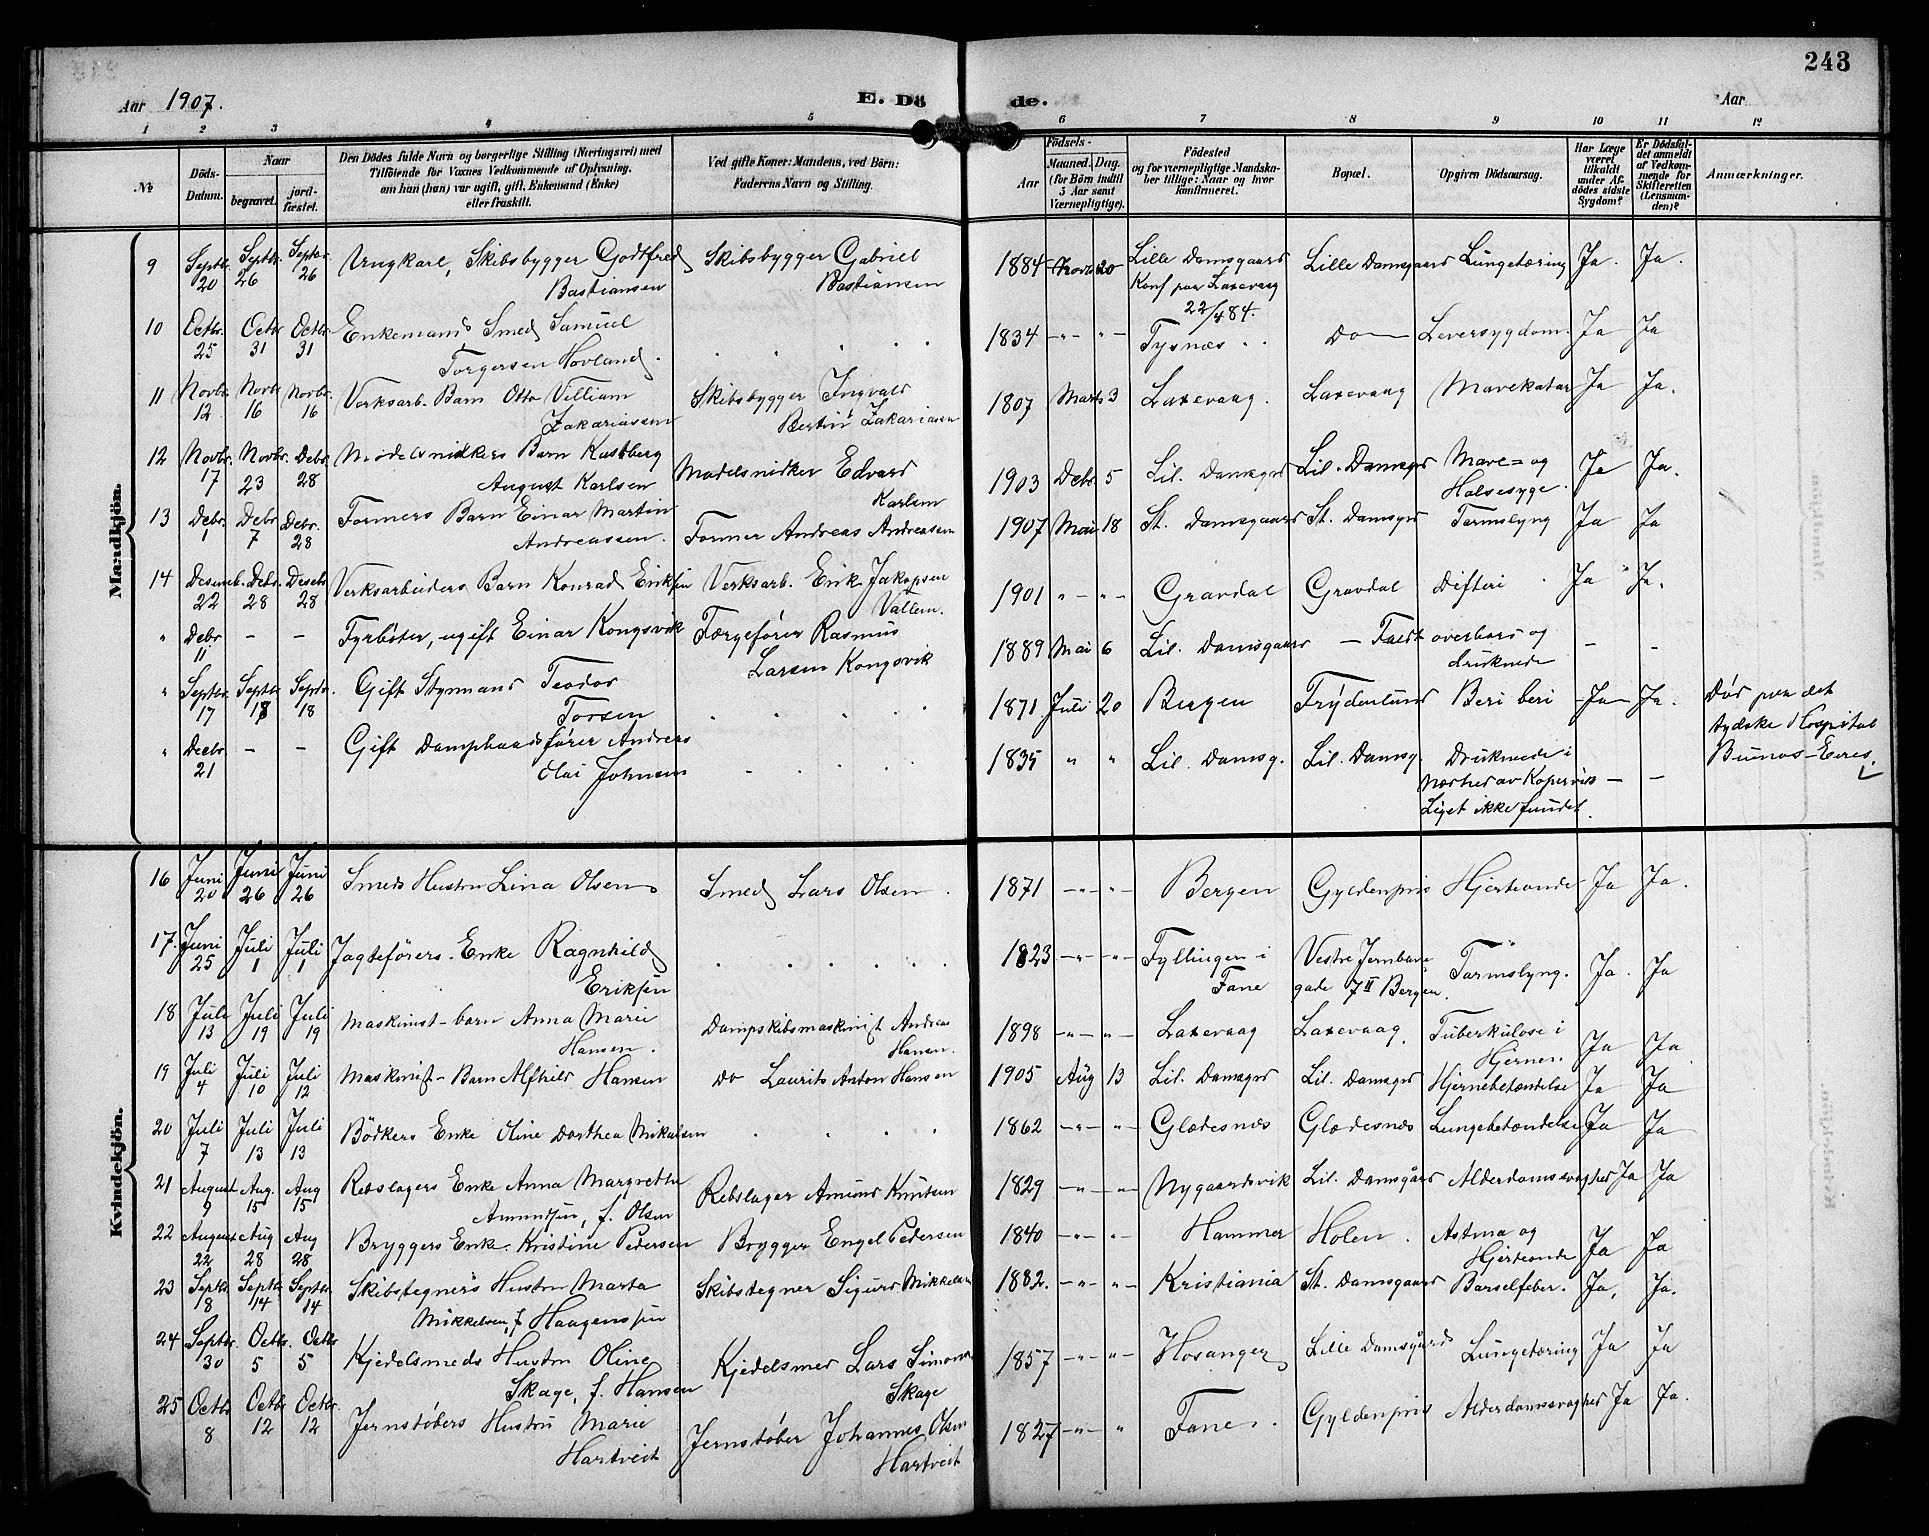 243
Aar 1907. E. Dö de. Aar
1 2 3 4 5 6 7 8 9 10 11 12
No Döds-Datum. Naar begravet. jord-fæstet. Den Dödes fulde Navn og borgerlige Stilling (Næringsvei) med Tilföiende for Voxnes Vedkommende af Oplysning, om han (hun) var ugift, gift, Enkemand (Enke) eller fraskilt. Ved gifte Koner: Mandens, ved Börn: Faderens Navn og Stilling. Födsels- Aar Maaned. Dag. (for Börn indtil 5 Aar samt Værnepligtige). Födested og for værnepligtige Mandskaber tillige: Naar og hvor konfirmeret. Bopæl. Opgiven Dödsaarsag. Har Læge været tilkaldt under Afdödes sidste Sygdom? Er Dödsfaldet anmeldt af Vedkommende for Skifteretten (Lensmanden)? Anmærkninger.
Mandkjön.
9 Septbr. 20 Septbr. 26 Septbr. 26 Ungkarl, Skibsbygger Godtfred Bastiansen Skibsbygger Gabriel Bastiansen 1884 Novb 20 Lille Damsgaard Konf paa Laxevaag 22/4 84. Lille Damsgaard Lungetæring Ja. Ja.
10 Octbr. 25 Octbr 31 Octbr. 31 Enkemand Smed Samuel Torgersen Hovland. 1834 - " - " - Tysnæs Do Leversygdom. Ja Ja
11 Novbr. 12 Novbr 16 Novbr. 16 Verksarb. Barn Otto Villiam Zakariassen Skibsbygger Ingvald Bertin Zakariasen 1807 Marts 3 Laxevaag. Laxevaag Mavekatar Ja Ja.
12 Novbr. 17 Novbr. 23 Debr. 28 Modelsnidkers Barn August Karlsen Modelsnidker Edvard Karlsen 1903 Debr 5 Lil. Damsgrd Lil. Damsgrd Mave= og Halsesyge. Ja Ja.
13 Debr. 1 Debr 7 Debr. 28 Formers Barn Einar Martin Andreassen. Former Andreas Andreassen 1907 Mai 18 St. Damsgaard St. Damsgrd Tarmslyng Ja Ja
14 Desemb. 22 Debr. 28 Desebr 28 Verksarbeiders Barn Konrad Eriksen Verksarb. Erik Jakopsen 1901 " - " - Gravdal Gravdal Difteri Ja Ja.
" Debr 11 - - Fyrbøter, ugift Einar Kongsvik Færgefører Rasmus Larsen Kongsvik 1889 Mai 6 Lil. Damsgaard - Faldt overbord og druknede - -
" Septbr. 17 Septbr 18 Septbr. 18 Gift Styrmand Teodor Torsen 1871 Juli 20 Bergen Frydenlund Beri beri Ja Ja. Død paa det tydske Hospital Buinos-Eeres.
" Decbr 21 - - Gift Dampbaadsfører Andreas Olai Johnsen 1835 " " Lil. Damsg. Lil. Damsg. Druknede i Nærhed av Kopervik Liget ikke fundet. - -
Kvindekjön.
16 Juni 20 Juni 26 Juni 26 Smeds Hustru Lina Olsen Smed Lars Olsen. 1871 - " - " - Bergen Gyldenpris Hjerteonde Ja Ja.
17. Juni 25 Juli 1 Juli 1 Jagteførers Enke Ragnhild Eriksen 1823 - " - " - Fyllingen i Fane Vestre Jernbanegade 7 II Bergen. Tarmslyng. Ja. Ja
18 Juli 13 Juli 19 Juli 19 Maskinist-barn Anna Marie Hansen. Dampskibsmaskinist Andreas Hansen. 1898 - " - " - Laxevaag Laxevaag. Tuberkulose i Hjernen. Ja Ja
19 Juli 4 Juli 10 Juli 12 Maskinist-Barn Alfhild Hansen Do Laurits Anton Hansen 1905 Aug 13 Lil. Damsgrd Lil. Damsgrd Hjernebetændelse Ja Ja
20 Juli 7 Juli 13 Juli 13 Bödkers Enke Oline Dorthea Mikalsen 1862 - " - " - Glædesnæs Glædesnæs Lungebetændelse Ja Ja
21 August 9 Aug. 15 Aug 15 Rebslagers Enke Anna Margretha Amundsen, f. Olsen Rebslager Amund Knutsen 1829 - " - " - Nygaardsvik Lil. Damsgård Alderdomssvaghed Ja Ja
22 August 22 Aug 28 Aug 28 Bryggers Enke. Kristine Pedersen Brygger Engel Pedersen 1840 - " - " Hammer Holen. Astma og Hjerteonde Ja Ja
23 Septbr. 8 Septbr 14 Septbr. 14 Skibstegners Hustru Marta Mikkelsen, f Haagenssen Skibstegner Sigurd Mikkelsen 1882. - " - " - Kristiania St. Damsgaard Barselfeber. Ja, Ja.
24 Septbr. 30 Octbr. 5 Octbr 5 Kjedelsmeds Hustru Oline Skage, f. Hansen Kjedelsmed Lars Simonsen Skage 1857 - " - " - Hosanger Lille Damsgård Lungetæring Ja Ja
25 Octbr 8 Octbr 12 Octbr. 12 Jernstøbers Hustru Marie Hartveit Jernstøber Johannes Olsen Hartveit 1827 - " - " Fane. Gyldenpris Alderdomssvaghed Ja Ja.